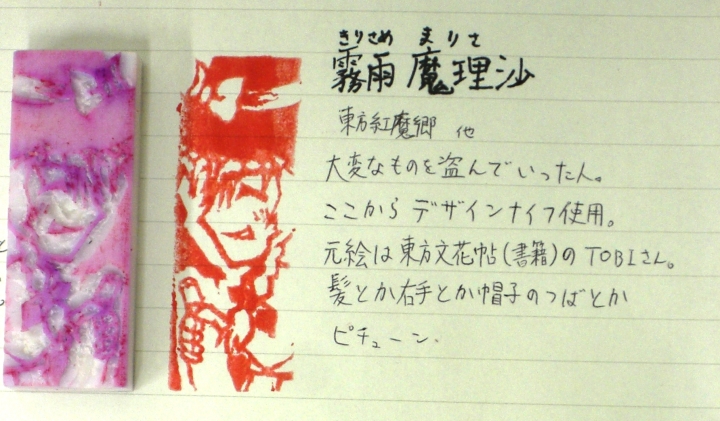 きりさめ まりさ
霧雨 魔理沙
東方紅魔郷 他
大変なものを盗んでいった人。
ここから デザインナイフ使用。
元絵は東方文花帖(書籍)のTOBIさん。
髪とか右手とか帽子のつばとか
ピチューン.